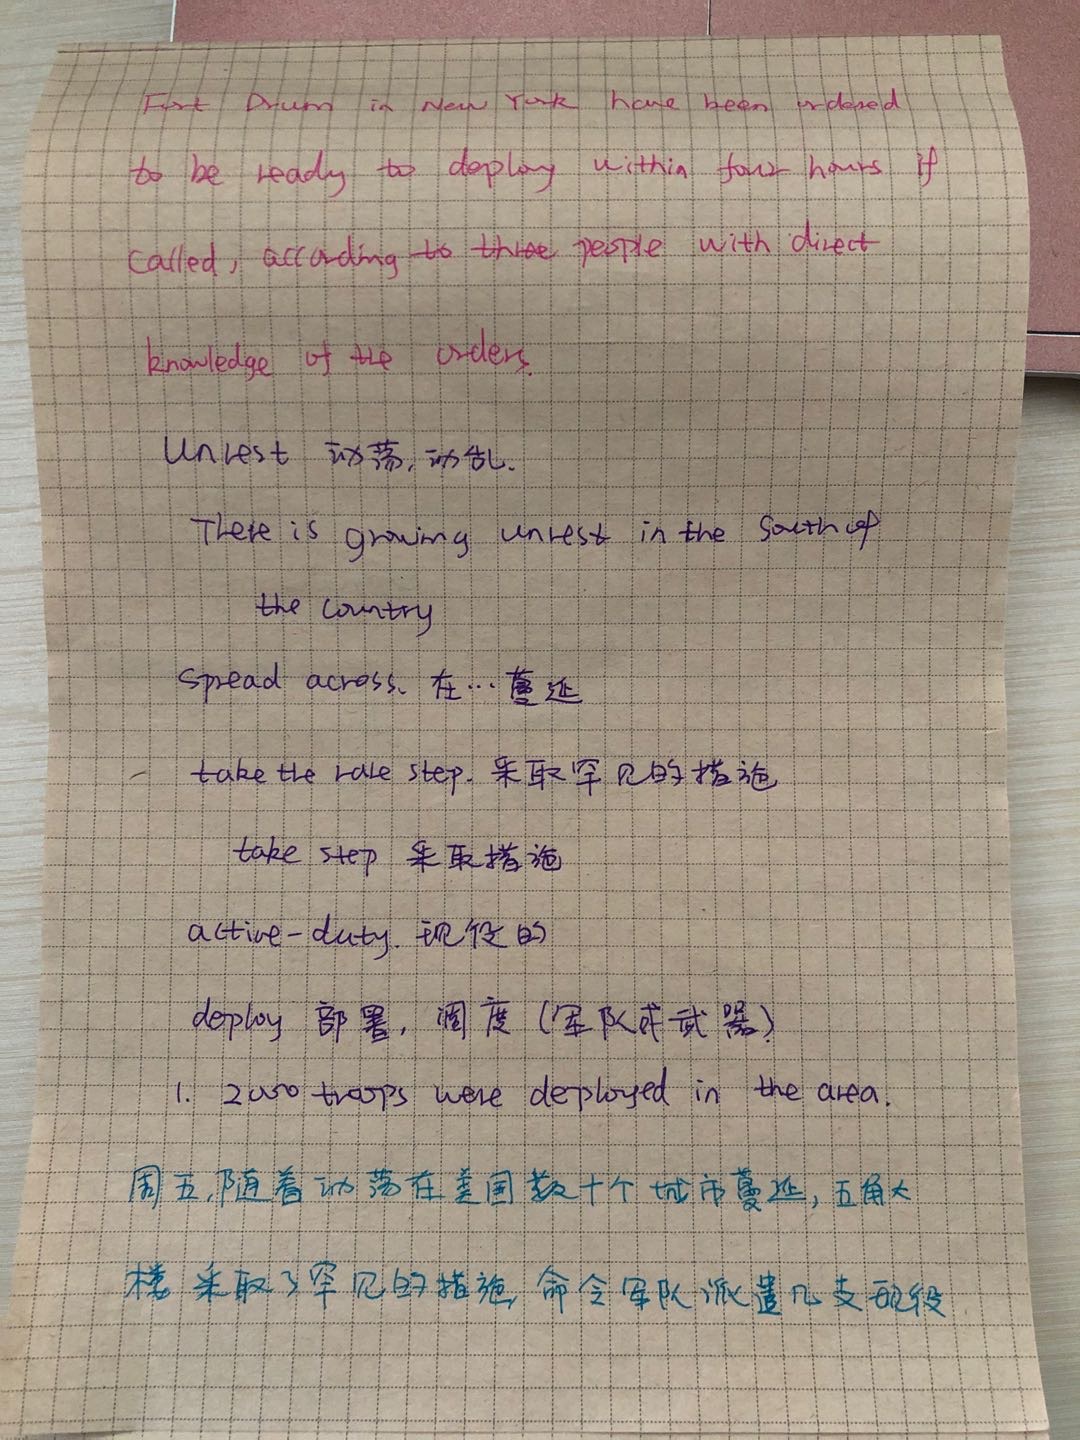 Fort Drum in New York have been ordered
to be ready to deploy within four hours if
called, according to three people with direct
knowledge of the orders.
Unrest 动荡,动乱.
There is growing unrest in the south of
the country
Spread across. 在…蔓延
take the rare step. 采取罕见的措施
take step 采取措施
active-duty. 现役的
deploy 部署, 调度 (军队或武器)
1. 2000 troops were deployed in the area.
周五,随着动荡在美国数十个城市蔓延,五角大
楼采取了罕见的措施,命令军队派遣几支现役